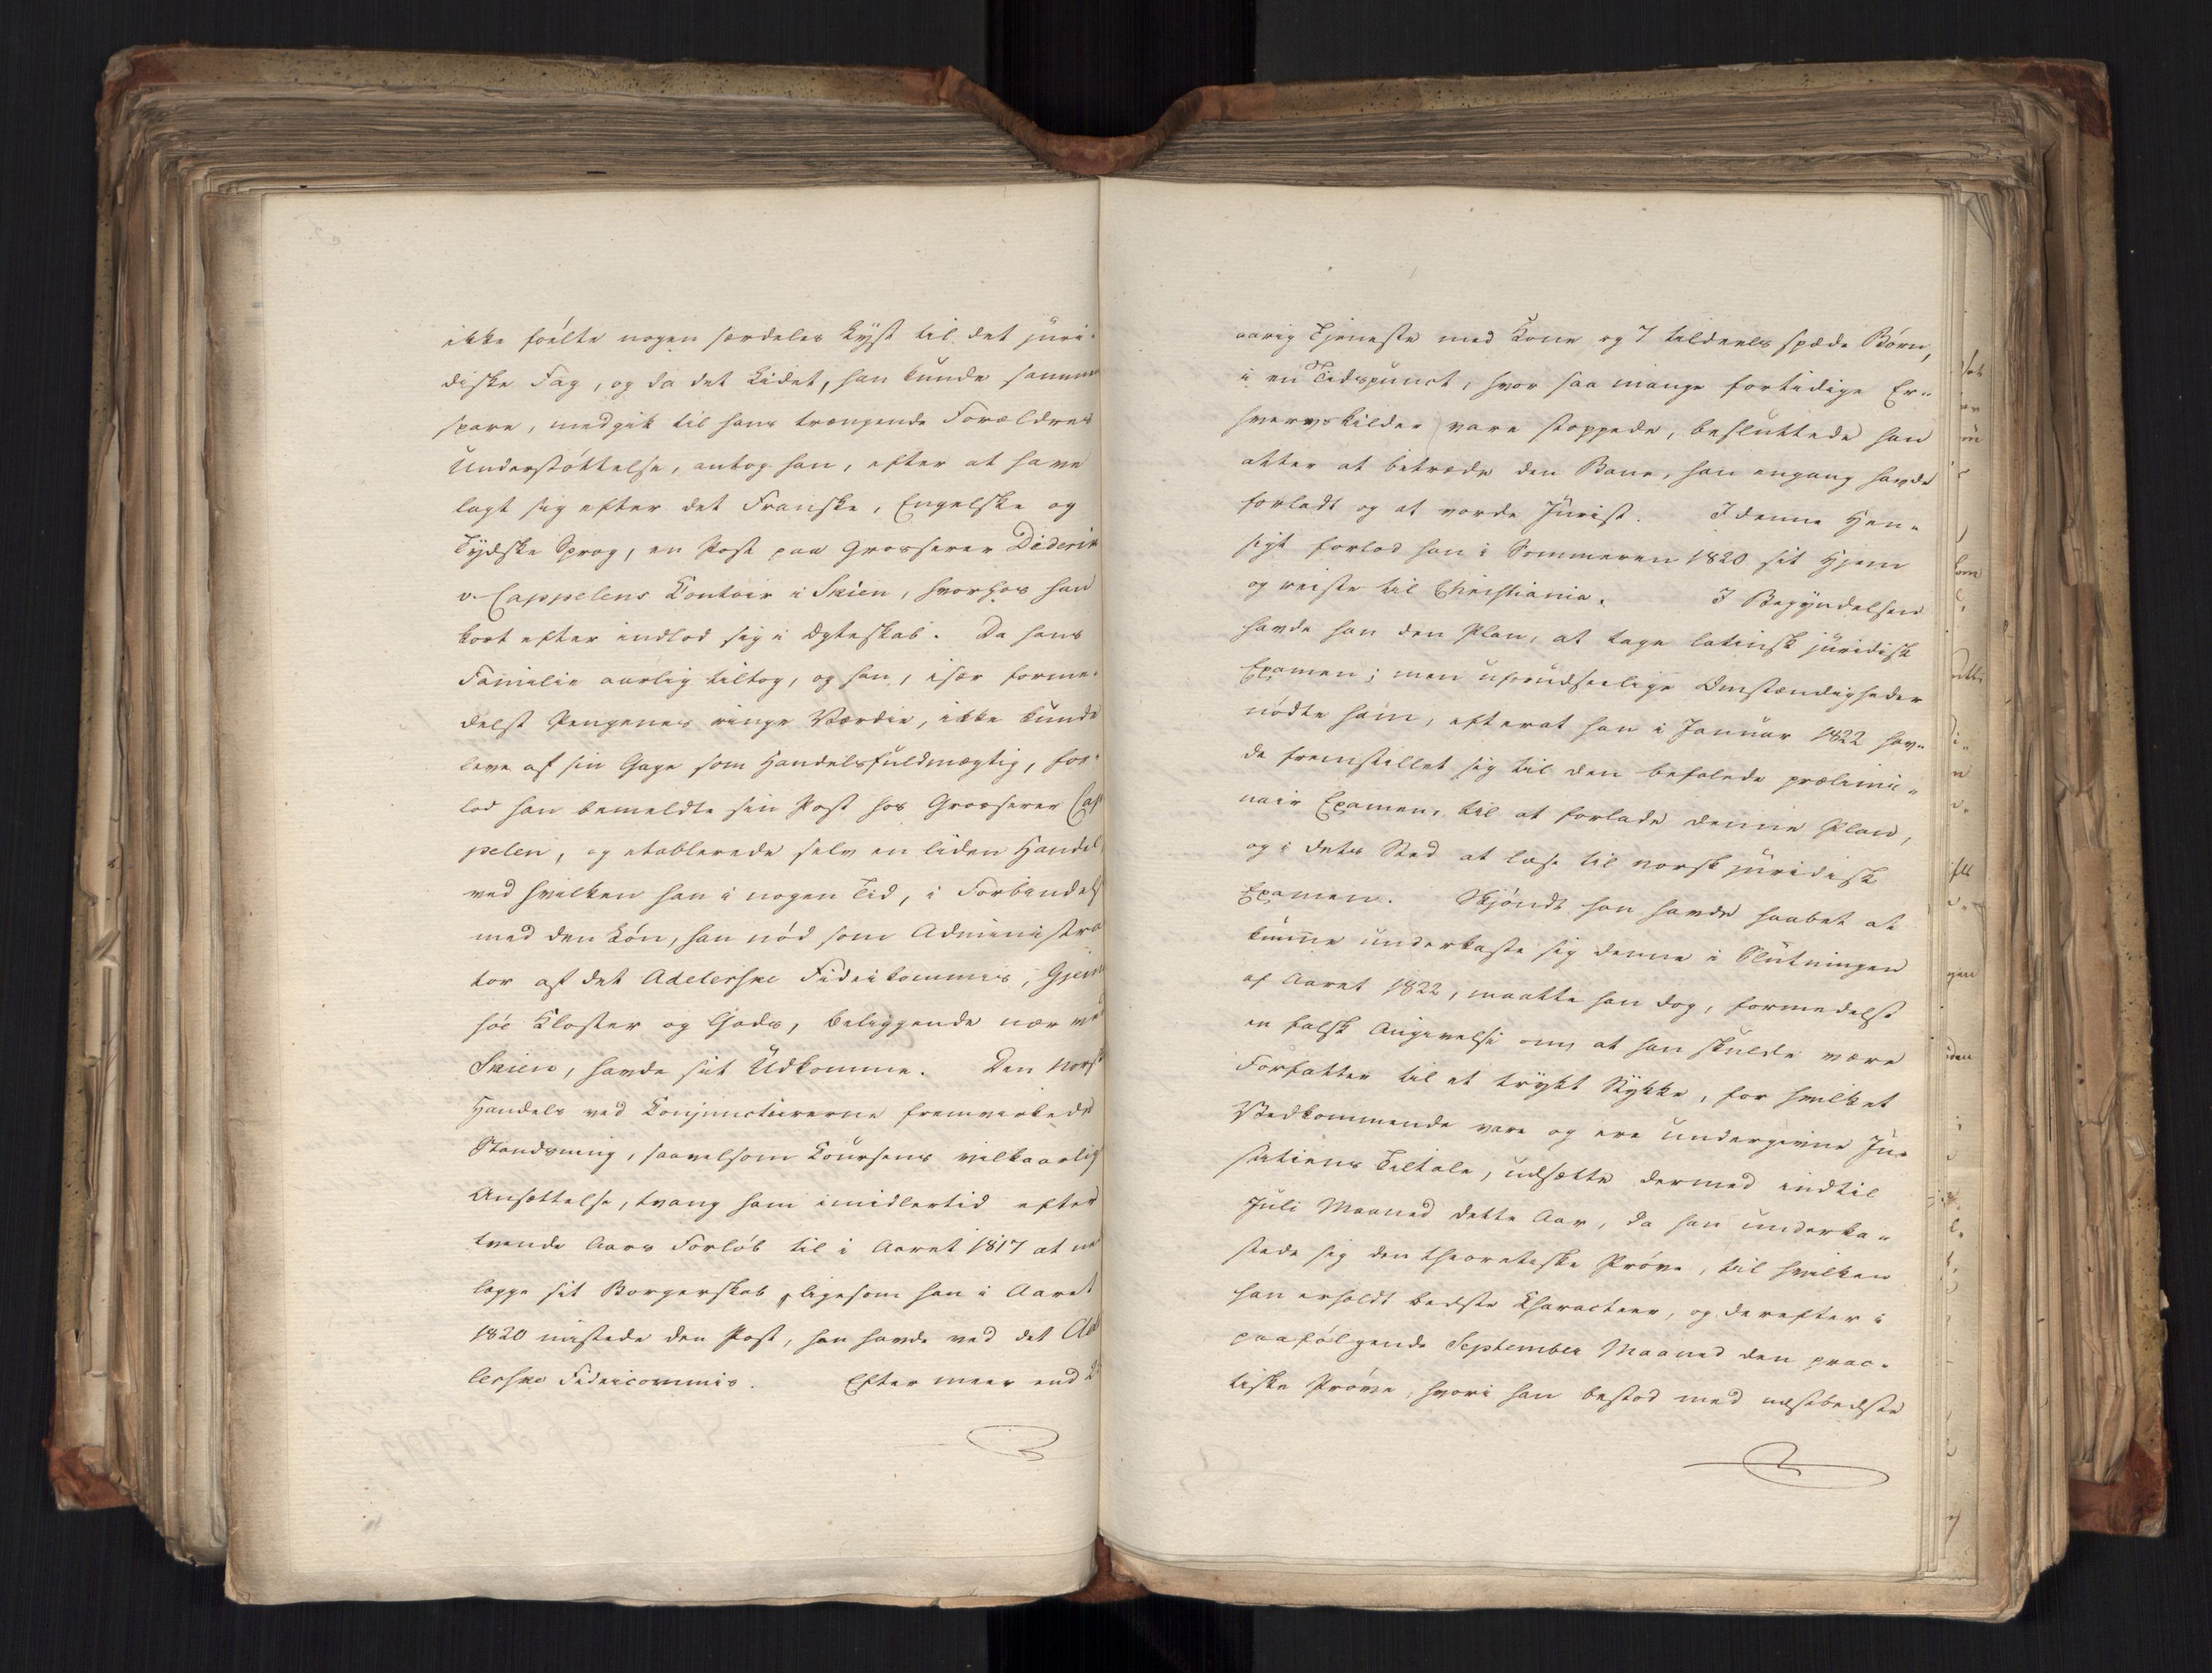 ikke følte nogen særdeles Lyst til det juri-
diske Fag, og da det Lidet, han kunde sammen
spare, medgik til hans trængende Forældres
Understøttelse, antog han, efter at have
lagt sig efter det Franske, Engelske og
Tydske Sprog, en Post paa Grosserer Diderik
v. Cappelens Contoir i Skien, hvorhos han
kort efter indlod sig i Ægteskab. Da hans
Familie aarlig tiltog, og han, især forme-
delst Pengenes ringe Værdie, ikke kunde
leve af sin Gage som Handelsfuldmægtig, for-
lod han bemeldte sin Post hos Grosserer Cap
pelen, og etablerede selv en liden Handel,
ved hvilken han i nogen Tid, i Forbindels
med den Løn, han nød som Administra
tor af det Adelerske Fideikommis, Gjem
søe Kloster og Gods, beliggende nær ved
Skien, havde sit Udkomme. Den norske
Handels ved Conjuncturerne fremvirkede
Standsning, saavelsom Coursens vilkaarlig
Ansættelse, tvang ham imidlertid efter
tvende Aars Forløb til i Aaret 1817 at ned
lægge sit Borgerskab, ligesom han i Aaret
1820 mistede den Post, han havde ved det Ade
lerske Fideicommis. Efter meer end 2
aarig Tjeneste med Kone og 7 tildeels spæde Børn,
i en Tidspunct, hvor saa mange fortidige Er-
hvervskilder vare stoppede, besluttede han
atter at betræde den Bane, han engang havde
forladt og at vorde Jurist. I denne Hen-
sigt forlod han i Sommeren 1820 sit Hjem
og reiste til Christiania. I Begyndelsen
havde han den Plan, at tage latinsk juridisk
Examen; men uforudseelige Omstændigheder
nødte ham, efterat han i Januar 1822 hav-
de fremstillet sig til den befalede prælimi-
nair Examen, til at forlade denne Plan,
og i dets Sted at læse til norsk juridisk
Examen. Skjøndt han havde haabet at
kunne underkaste sig denne i Slutningen
af Aaret 1822, maatte han dog, formedelst
en falsk Angivelse om, at han skulde være
Forfatter til et trykt Stykke, for hvilket
Vedkommende vare og ere undergivne Ju-
stitiens Tiltale, udsætte dermed indtil
Juli Maaned dette Aar, da han underka-
stede sig den theoretiske Prøve, til hvilken
han erholdt bedste Charakteer, og derefter i
paafølgende September Maaned den prac-
tiske Prøve, hvori han bestod med næstbedste